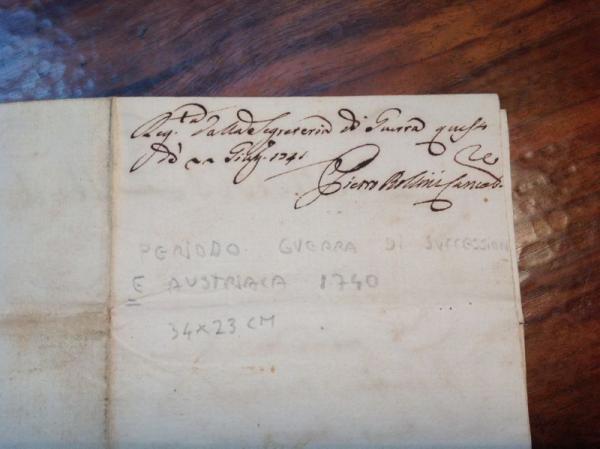 Reg.ta dalla Segreteria di Guerra questo
dì 22 Giug. 1741
Pietro Bollini Cancel.
PERIODO GUERRA DI SUCCESSION
E AUSTRIACA 1740
34×23 CM